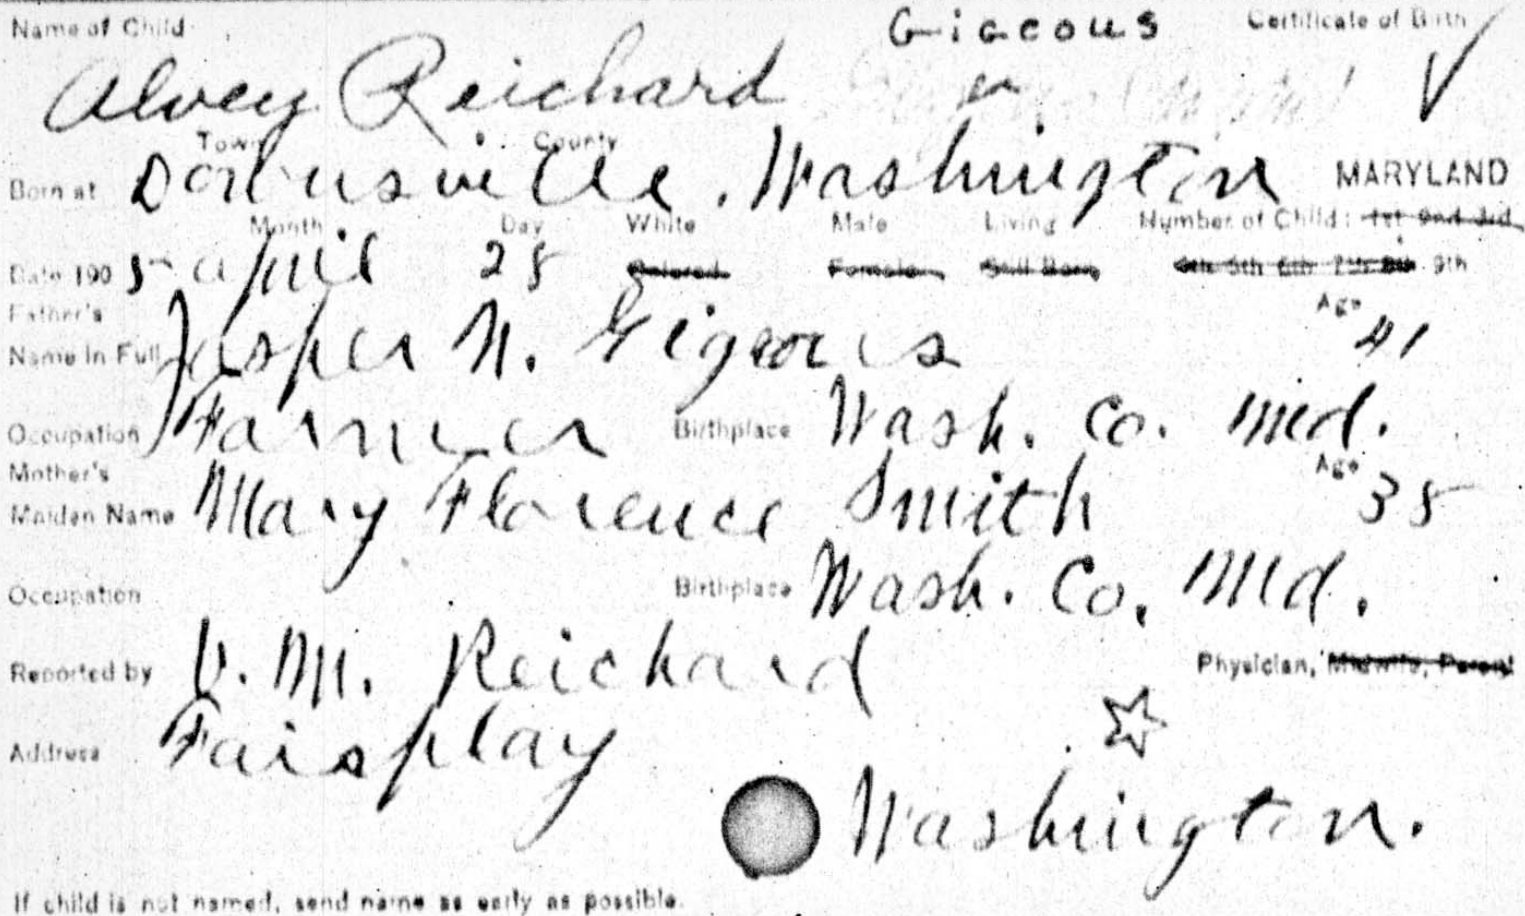 Name of Child Gigeous Certificate of Birth
Alvey Reichard
Town County
Born at Downsville, Washington MARYLAND
Month Day White Male Living Number of Child: 1st 2nd 3rd
Date 1905 April 28 Colored Female Still Born 4th 5th 6th 7th 8th 9th
Father's Age
Name in Full Jasper N. Gigeous 41
Occupation Farmer Birthplace Wash. Co. Md.
Mother's Age
Maiden Name Mary Florence Smith 38
Occupation Birthplace Wash. Co. Md.
Reported by V. M. Reichard Physician, Midwife, Parent
Address Fairplay
Washington.
If child is not named, send name as early as possible.